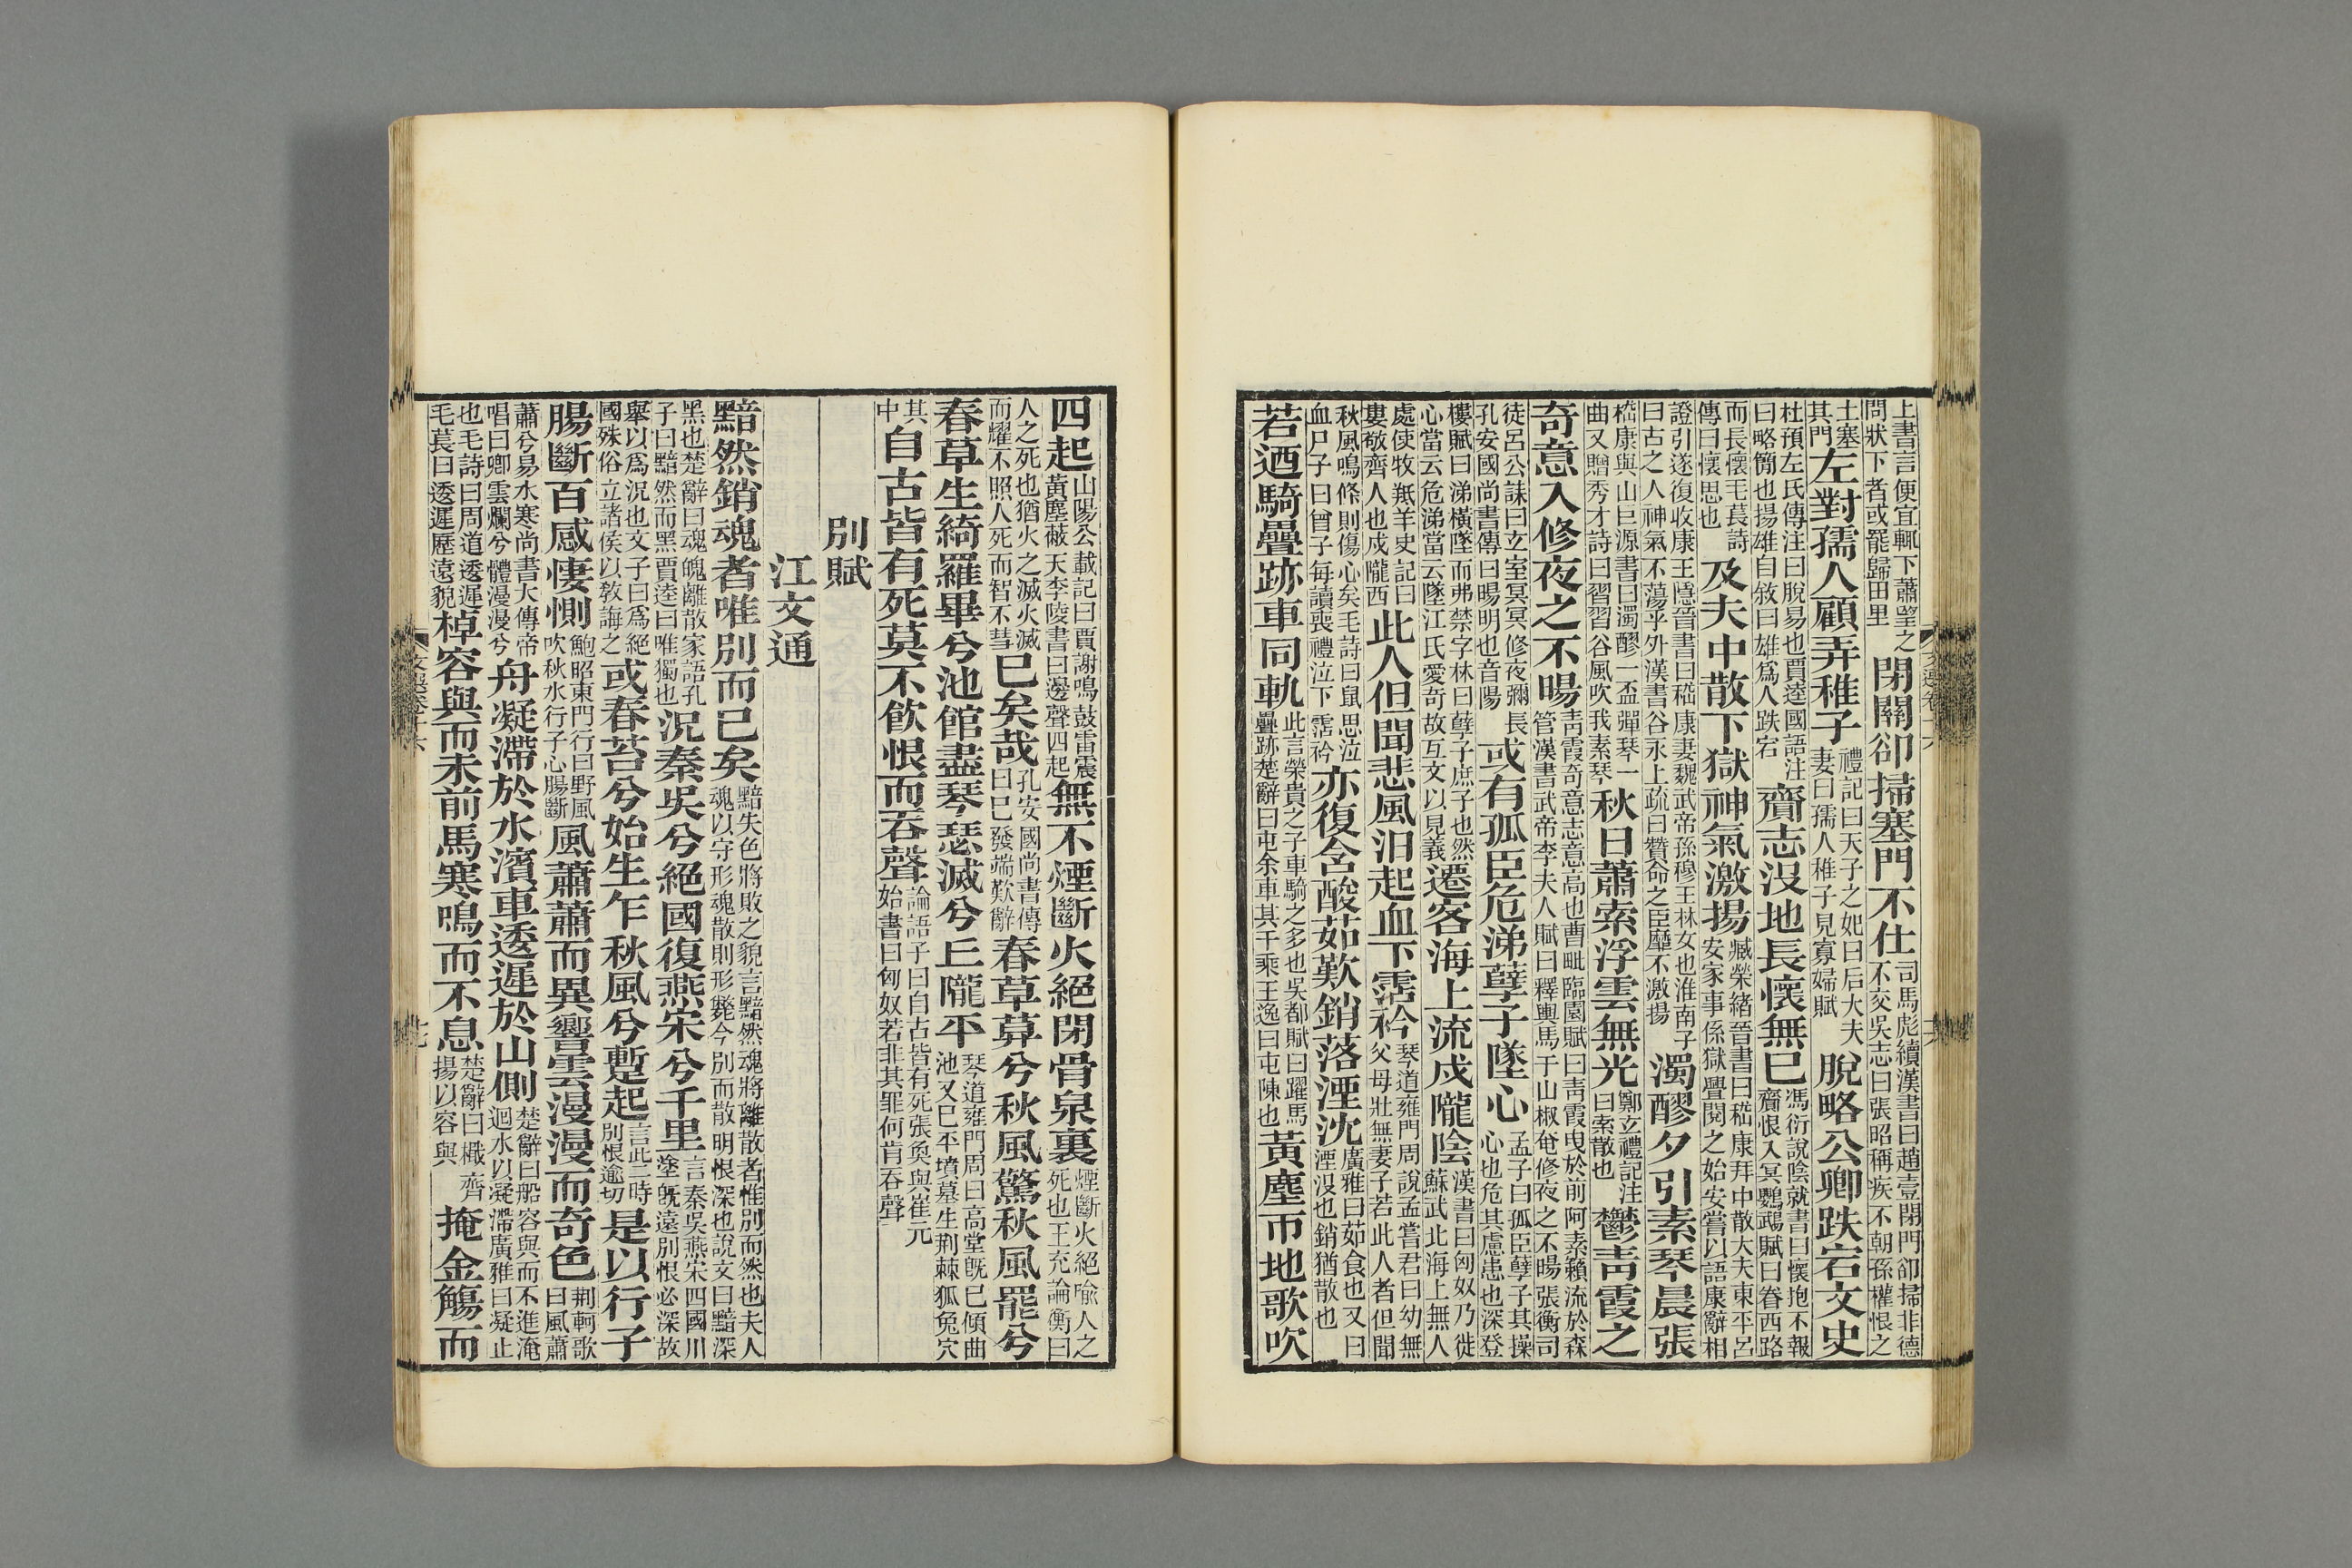 上書言便宜輒下蕭望之問狀下者或罷歸田里閉關卻掃塞門不仕司馬彪續漢書曰趙壹閉門卻掃非德不交吳志曰張昭稱疾不朝孫權恨之
土塞其門左對孺人顧弄稚子禮記曰天子之妃曰后大夫妻曰孺人稚子見寡婦賦脫略公卿跌宕文史
杜預左氏傳注曰脫易也賈逵國語注曰略簡也揚雄自敘曰雄爲人跌宕齎志沒地長懷無已馮衍說陰就書曰懷抱不報齎恨入冥鸚鵡賦曰眷西路
而長懷毛萇詩傳曰懷思也及夫中散下獄神氣激揚臧榮緒晉書曰嵇康拜中散大夫東平呂安家事係獄亹閱之始安嘗以語康辭相
證引遂復收康王隱晉書曰嵇康妻魏武帝孫穆王林女也淮南子曰古之人神氣不蕩乎外漢書谷永上疏曰贊命之臣靡不激揚濁醪夕引素琴晨張
嵇康與山巨源書曰濁醪一盃彈琴一曲又贈秀才詩曰習習谷風吹我素琴秋日蕭索浮雲無光鄭玄禮記注曰索散也鬱青霞之
奇意入修夜之不暘青霞奇意志意高也曹毗臨園賦曰青霞曳於前阿素籟流於森管漢書武帝李夫人賦曰釋輿馬于山椒奄修夜之不暘張衡司
徒呂公誄曰玄室冥冥修夜彌長孔安國尚書傳曰暘明也音陽或有孤臣危涕孽子墜心孟子曰孤臣孽子其操心也危其慮患也深登
樓賦曰涕橫墜而弗禁字林曰孽子庶子也然心當云危涕當云墜江氏愛奇故互文以見義遷客海上流戍隴陰漢書曰匈奴乃徙蘇武北海上無人
處使牧羝羊史記曰婁敬齊人也戍隴西此人但聞悲風汩起血下霑衿琴道雍門周說孟嘗君曰幼無父母壯無妻子若此人者但聞
秋風鳴條則傷心矣毛詩曰鼠思泣血尸子曰曾子每讀喪禮泣下霑衿亦復含酸茹歎銷落湮沈廣雅曰茹食也又曰湮沒也銷猶散也
若迺騎疊跡車同軌此言榮貴之子車騎之多也吳都賦曰躍馬疊跡楚辭曰屯余車其千乘王逸曰屯陳也黃塵帀地歌吹
四起山陽公載記曰賈謝鳴鼓雷震黃塵蔽天李陵書曰邊聲四起無不煙斷火絕閉骨泉裏煙斷火絕喻人之死也王充論衡曰
人之死也猶火之滅火滅而耀不照人死而智不彗已矣哉孔安國尚書傳曰已發端歎辭春草暮兮秋風驚秋風罷兮
春草生綺羅畢兮池館盡琴瑟滅兮丘隴平琴道雍門周曰高堂既已傾曲池又已平墳墓生荆棘狐兔穴
其中自古皆有死莫不飲恨而吞聲論語子曰自古皆有死張奐與崔元始書曰匈奴若非其罪何肯吞聲
別賦
江文通
黯然銷魂者唯別而已矣黯失色將敗之貌言黯然魂將離散者惟別而然也夫人魂以守形魂散則形斃今別而散明恨深也說文曰黯深
黑也楚辭曰魂魄離散家語孔子曰黯然而黑賈逵曰唯獨也況秦吳兮絕國復燕宋兮千里言秦吳燕宋四國川塗既遠別恨必深故
舉以爲況也文子曰爲絕國殊俗立諸侯以敎誨之或春苔兮始生乍秋風兮蹔起言此二時別恨逾切是以行子
腸斷百感悽惻鮑昭東門行曰野風吹秋水行子心腸斷風蕭蕭而異響雲漫漫而奇色荆軻歌曰風蕭
蕭兮易水寒尚書大傳帝唱曰卿雲爛兮體漫漫兮舟凝滯於水濱車逶遲於山側楚辭曰船容與而不進淹迴水以凝滯廣雅曰凝止
也毛詩曰周道逶遲毛萇曰逶遲歷遠貌棹容與而未前馬寒鳴而不息楚辭曰檝齊揚以容與掩金觴而
文選卷十六
十七